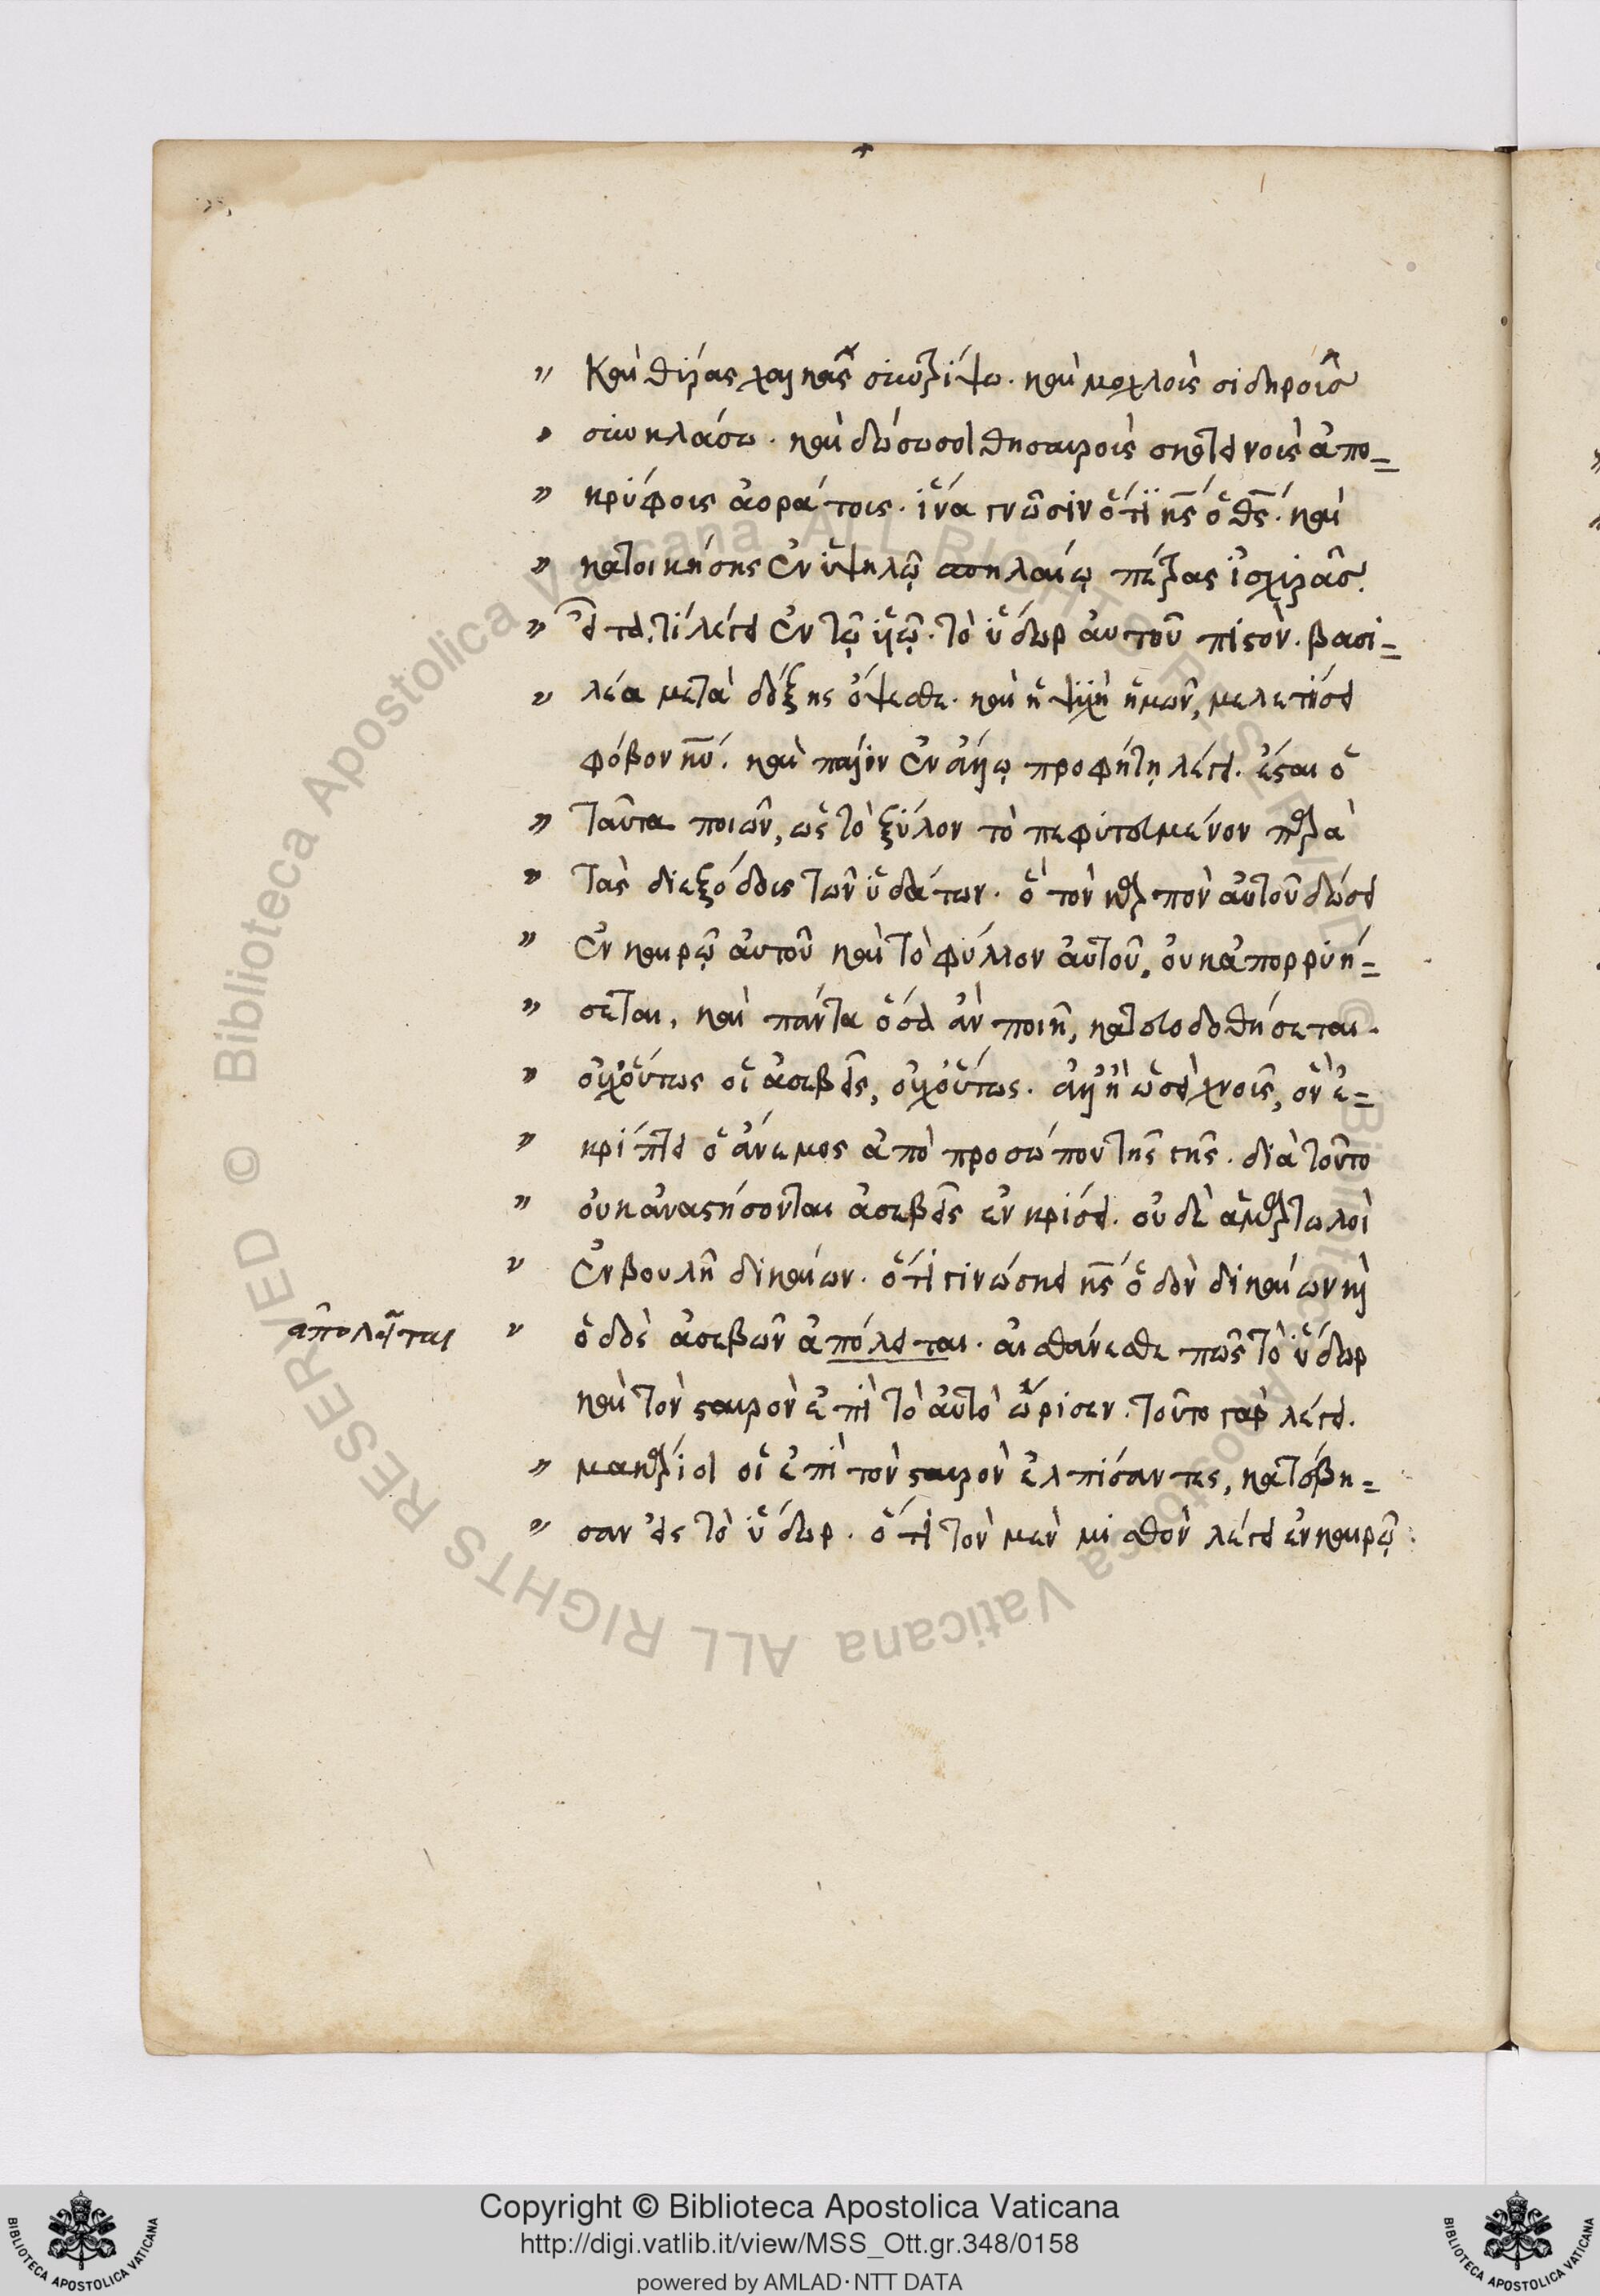 Καὶ θύρας χαλκᾶς συντρίψω. καὶ μοχλοὺς σιδηροῦς
συνκλάσω. καὶ δώσω σοι θησαυροὺς σκοτεινοὺς ἀπο=
κρύφους ἀοράτους. ἵνα γνῶσιν ὅτι κς ὁ θς. καὶ
κατοικήσης ἐν ὑψηλῷ σπηλαίῳ πέτρας ἰσχυρᾶς.
εἶτα. τί λέγει ἐν τῷ ὑῷ. τὸ ὕδωρ αὐτοῦ πιστόν. βασι=
λέα μετὰ δόξης ὄψεσθε. καὶ ἡ ψυχὴ ἡμῶν, μελετήσει
φόβον κυ. καὶ πάλιν ἐν ἄλλῳ προφήτῃ λέγει. ἔσται ὁ
ταῦτα ποιῶν, ὡς τὸ ξύλον τὸ πεφυτευμένον παρὰ
τὰς διεξόδους τῶν ὑδάτων. ὃ τὸν καρπὸν αὐτοῦ δώσει
ἐν καιρῷ αὐτοῦ καὶ τὸ φύλλον αὐτοῦ, οὐκ ἀπορρυή=
σεται, καὶ πάντα ὅσα ἂν ποιῆ, κατευοδοθήσεται.
οὐχ οὕτως οἱ ἀσεβεῖς, οὐχ οὕτως. ἀλλ' ἢ ὡσεὶ χνοῦς, ὃν ἐ=
κρίπτει ὁ ἄνεμος ἀπὸ προσώπου τῆς γῆς. διὰ τοῦτο
οὐκ ἀναστήσονται ἀσεβεῖς ἐν κρίσει. οὐδὲ ἁμαρτωλοὶ
ἐν βουλῇ δικαίων. ὅτι γινώσκει κς ὁδὸν δικαίων καὶ
ἀπολεῖται
ὁδὸς ἀσεβῶν ἀπόλειται. αἰσθάνεσθε πῶς τὸ ὕδωρ
καὶ τὸν σταυρὸν ἐπὶ τὸ αὐτὸ ὥρισεν. τοῦτο γὰρ λέγει.
μακάριοι οἳ ἐπὶ τὸν σταυρὸν ἐλπίσαντες, κατέβη=
σαν εἰς τὸ ὕδωρ. ὅτι τὸν μὲν μισθὸν λέγει ἐν καιρῷ
Copyright © Biblioteca Apostolica Vaticana
http://digi.vatlib.it/view/MSS_Ott.gr.348/0158
powered by AMLAD·NTT DATA
BIBLIOTECA APOSTOLICA VATICANA
BIBLIOTECA APOSTOLICA VATICANA
© Biblioteca Apostolica Vaticana ALL RIGHTS RESERVED
© Biblioteca Apostolica Vaticana ALL RIGHTS RESERVED